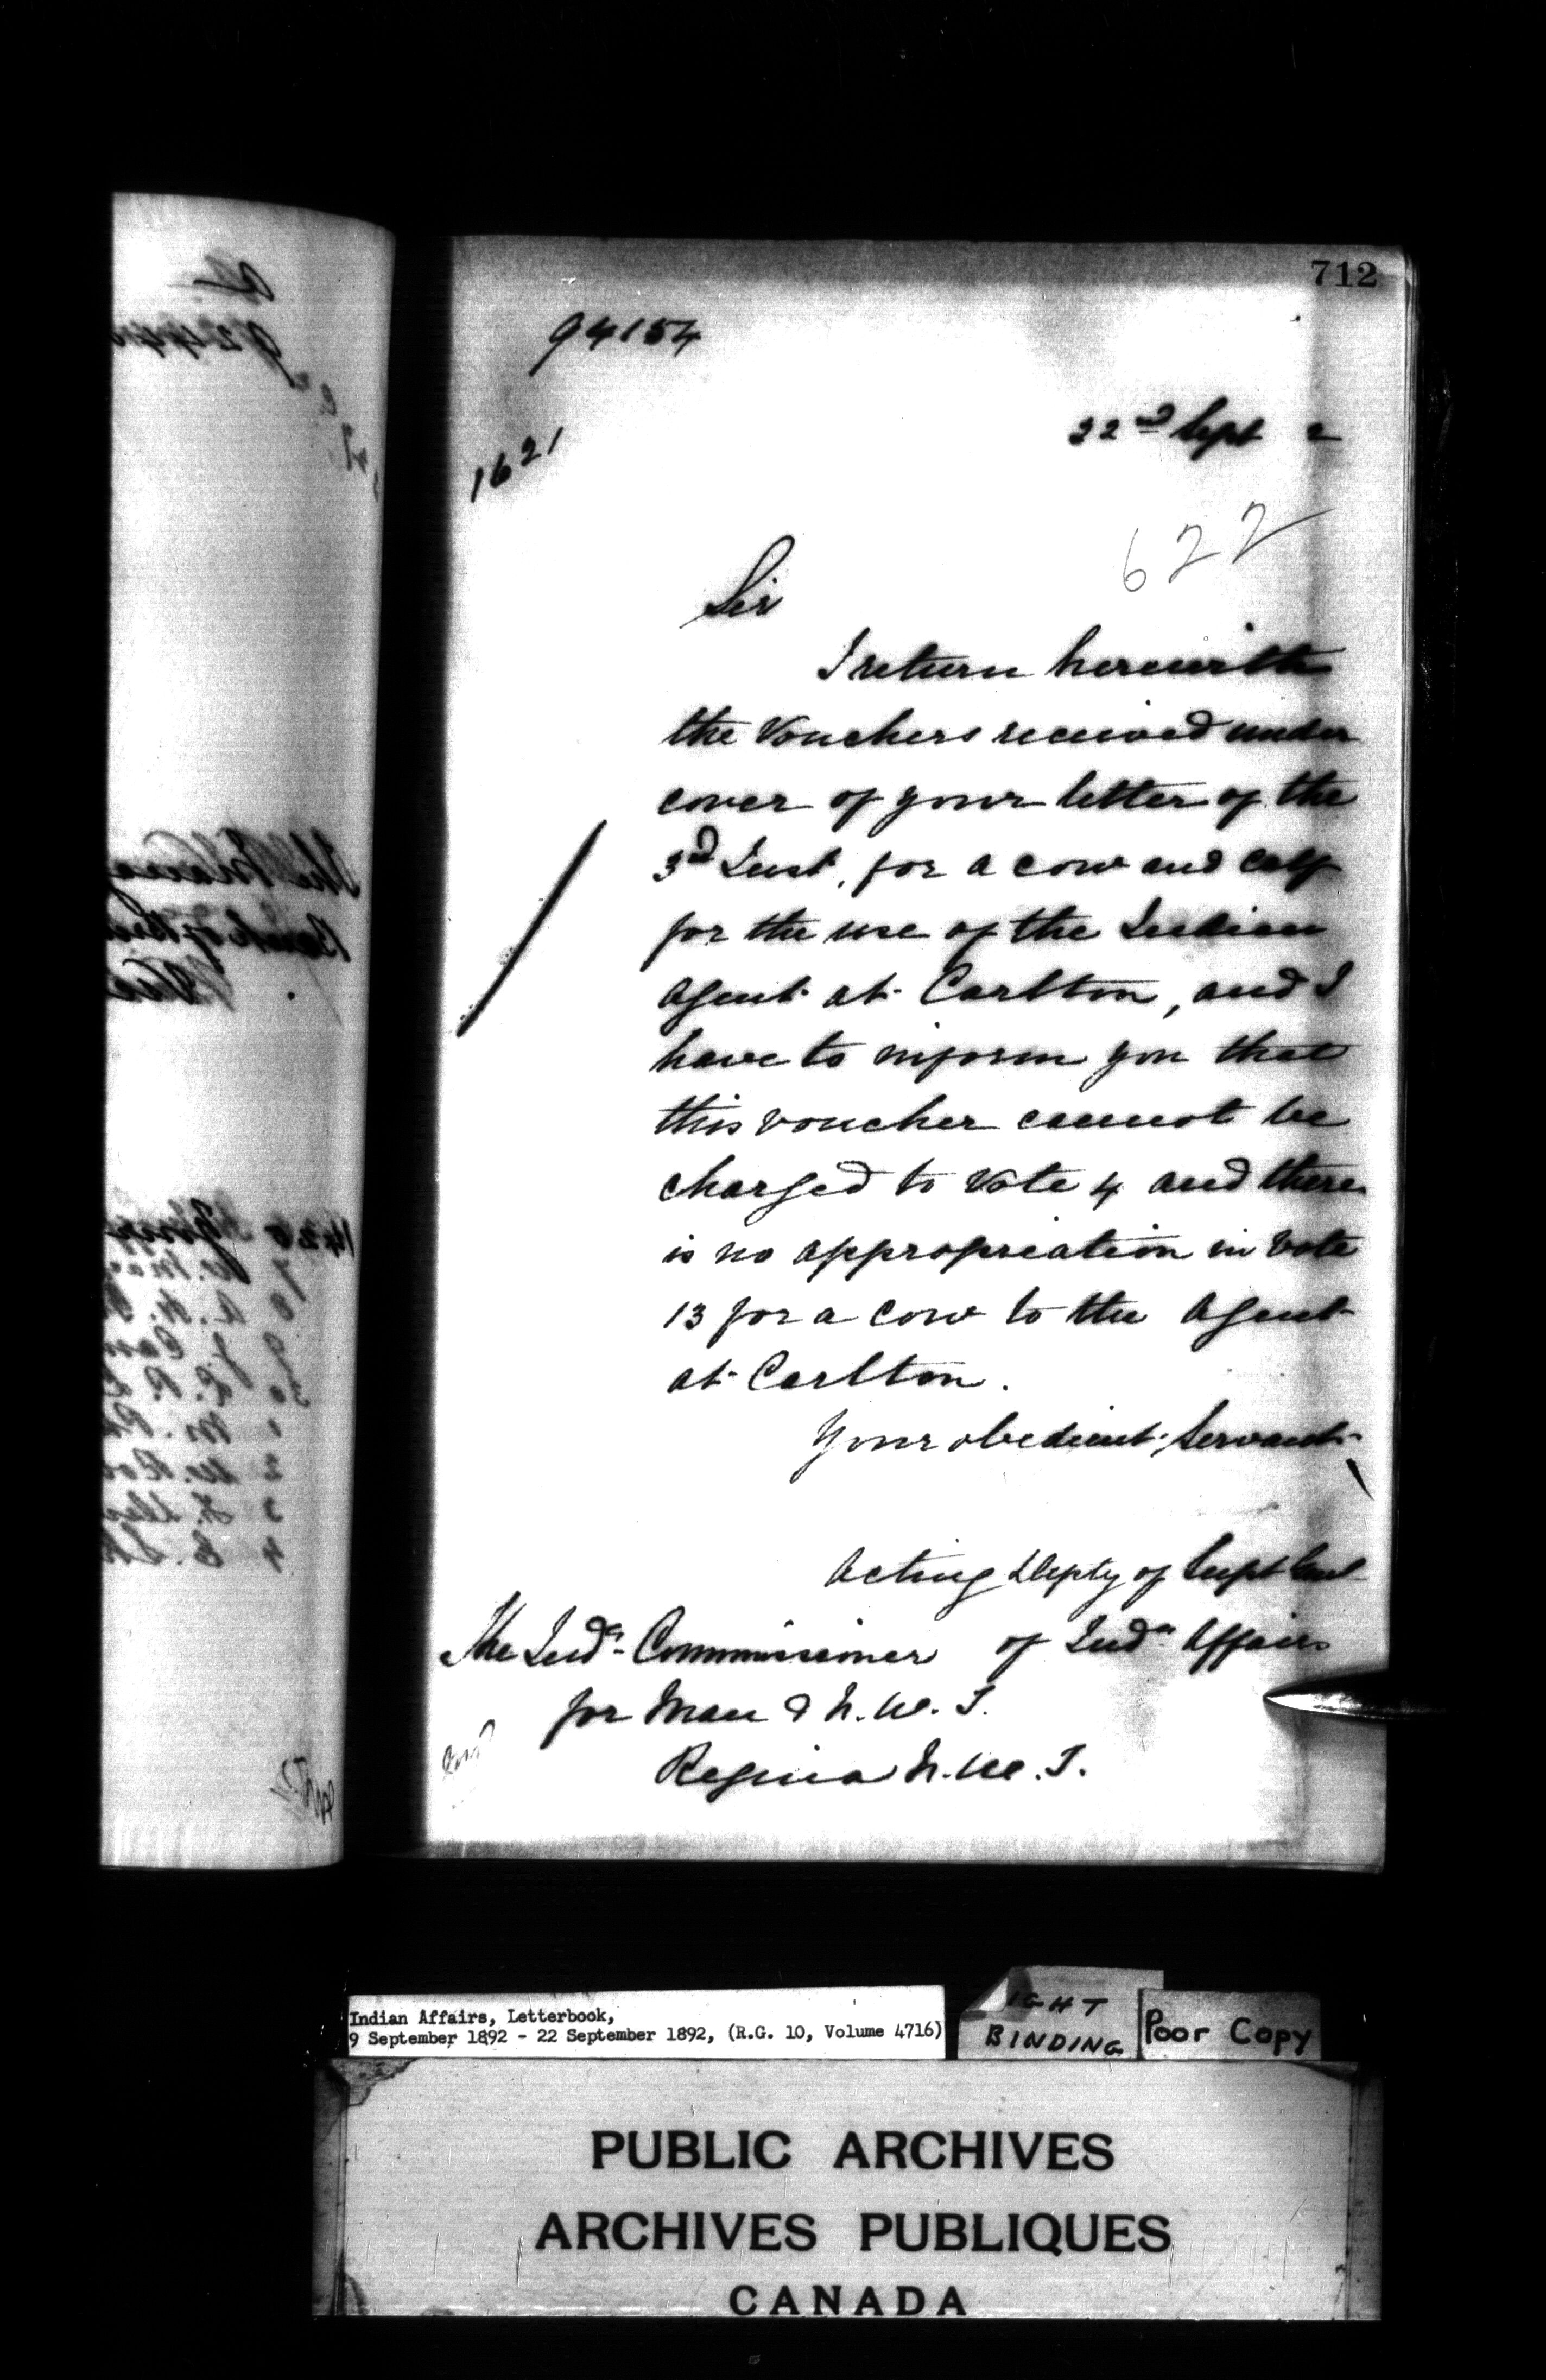 712
94154
1621
22nd Sept 2
622
Sir
I return herewith
the Vouchers received under
cover of your letter of the
3rd Inst. for a cow and calf
for the use of the Indian
Agent at Carlton, and I
have to inform you that
this voucher cannot be
charged to Vote 4 and there
is no appropriation in Vote
13 for a cow to the Agent
at Carlton.
Your obedient Servant
Acting Depty of Supt Genl
of Indn Affairs
The Indn Commissioner
for Man & N.W.T.
Regina N.W.T.
Indian Affairs, Letterbook,
9 September 1892 - 22 September 1892, (R.G. 10, Volume 4716)
IGHT
BINDING
Poor Copy
PUBLIC ARCHIVES
ARCHIVES PUBLIQUES
CANADA